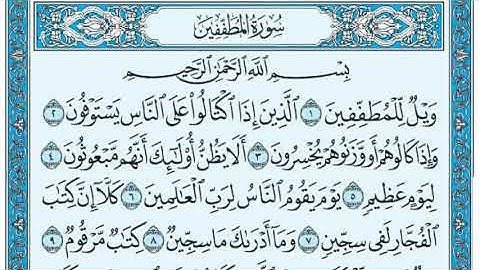 سُورَةُ الْمُطَفِّفِينَ
بِسْمِ اللَّهِ الرَّحْمَٰنِ الرَّحِيمِ
وَيْلٌ لِّلْمُطَفِّفِينَ ١ الَّذِينَ إِذَا اكْتَالُوا عَلَى النَّاسِ يَسْتَوْفُونَ ٢
وَإِذَا كَالُوهُمْ أَو وَّزَنُوهُمْ يُخْسِرُونَ ٣ أَلَا يَظُنُّ أُولَٰئِكَ أَنَّهُم مَّبْعُوثُونَ ٤
لِيَوْمٍ عَظِيمٍ ٥ يَوْمَ يَقُومُ النَّاسُ لِرَبِّ الْعَالَمِينَ ٦ كَلَّا إِنَّ كِتَابَ
الْفُجَّارِ لَفِي سِجِّينٍ ٧ وَمَا أَدْرَاكَ مَا سِجِّينٌ ٨ كِتَابٌ مَّرْقُومٌ ٩